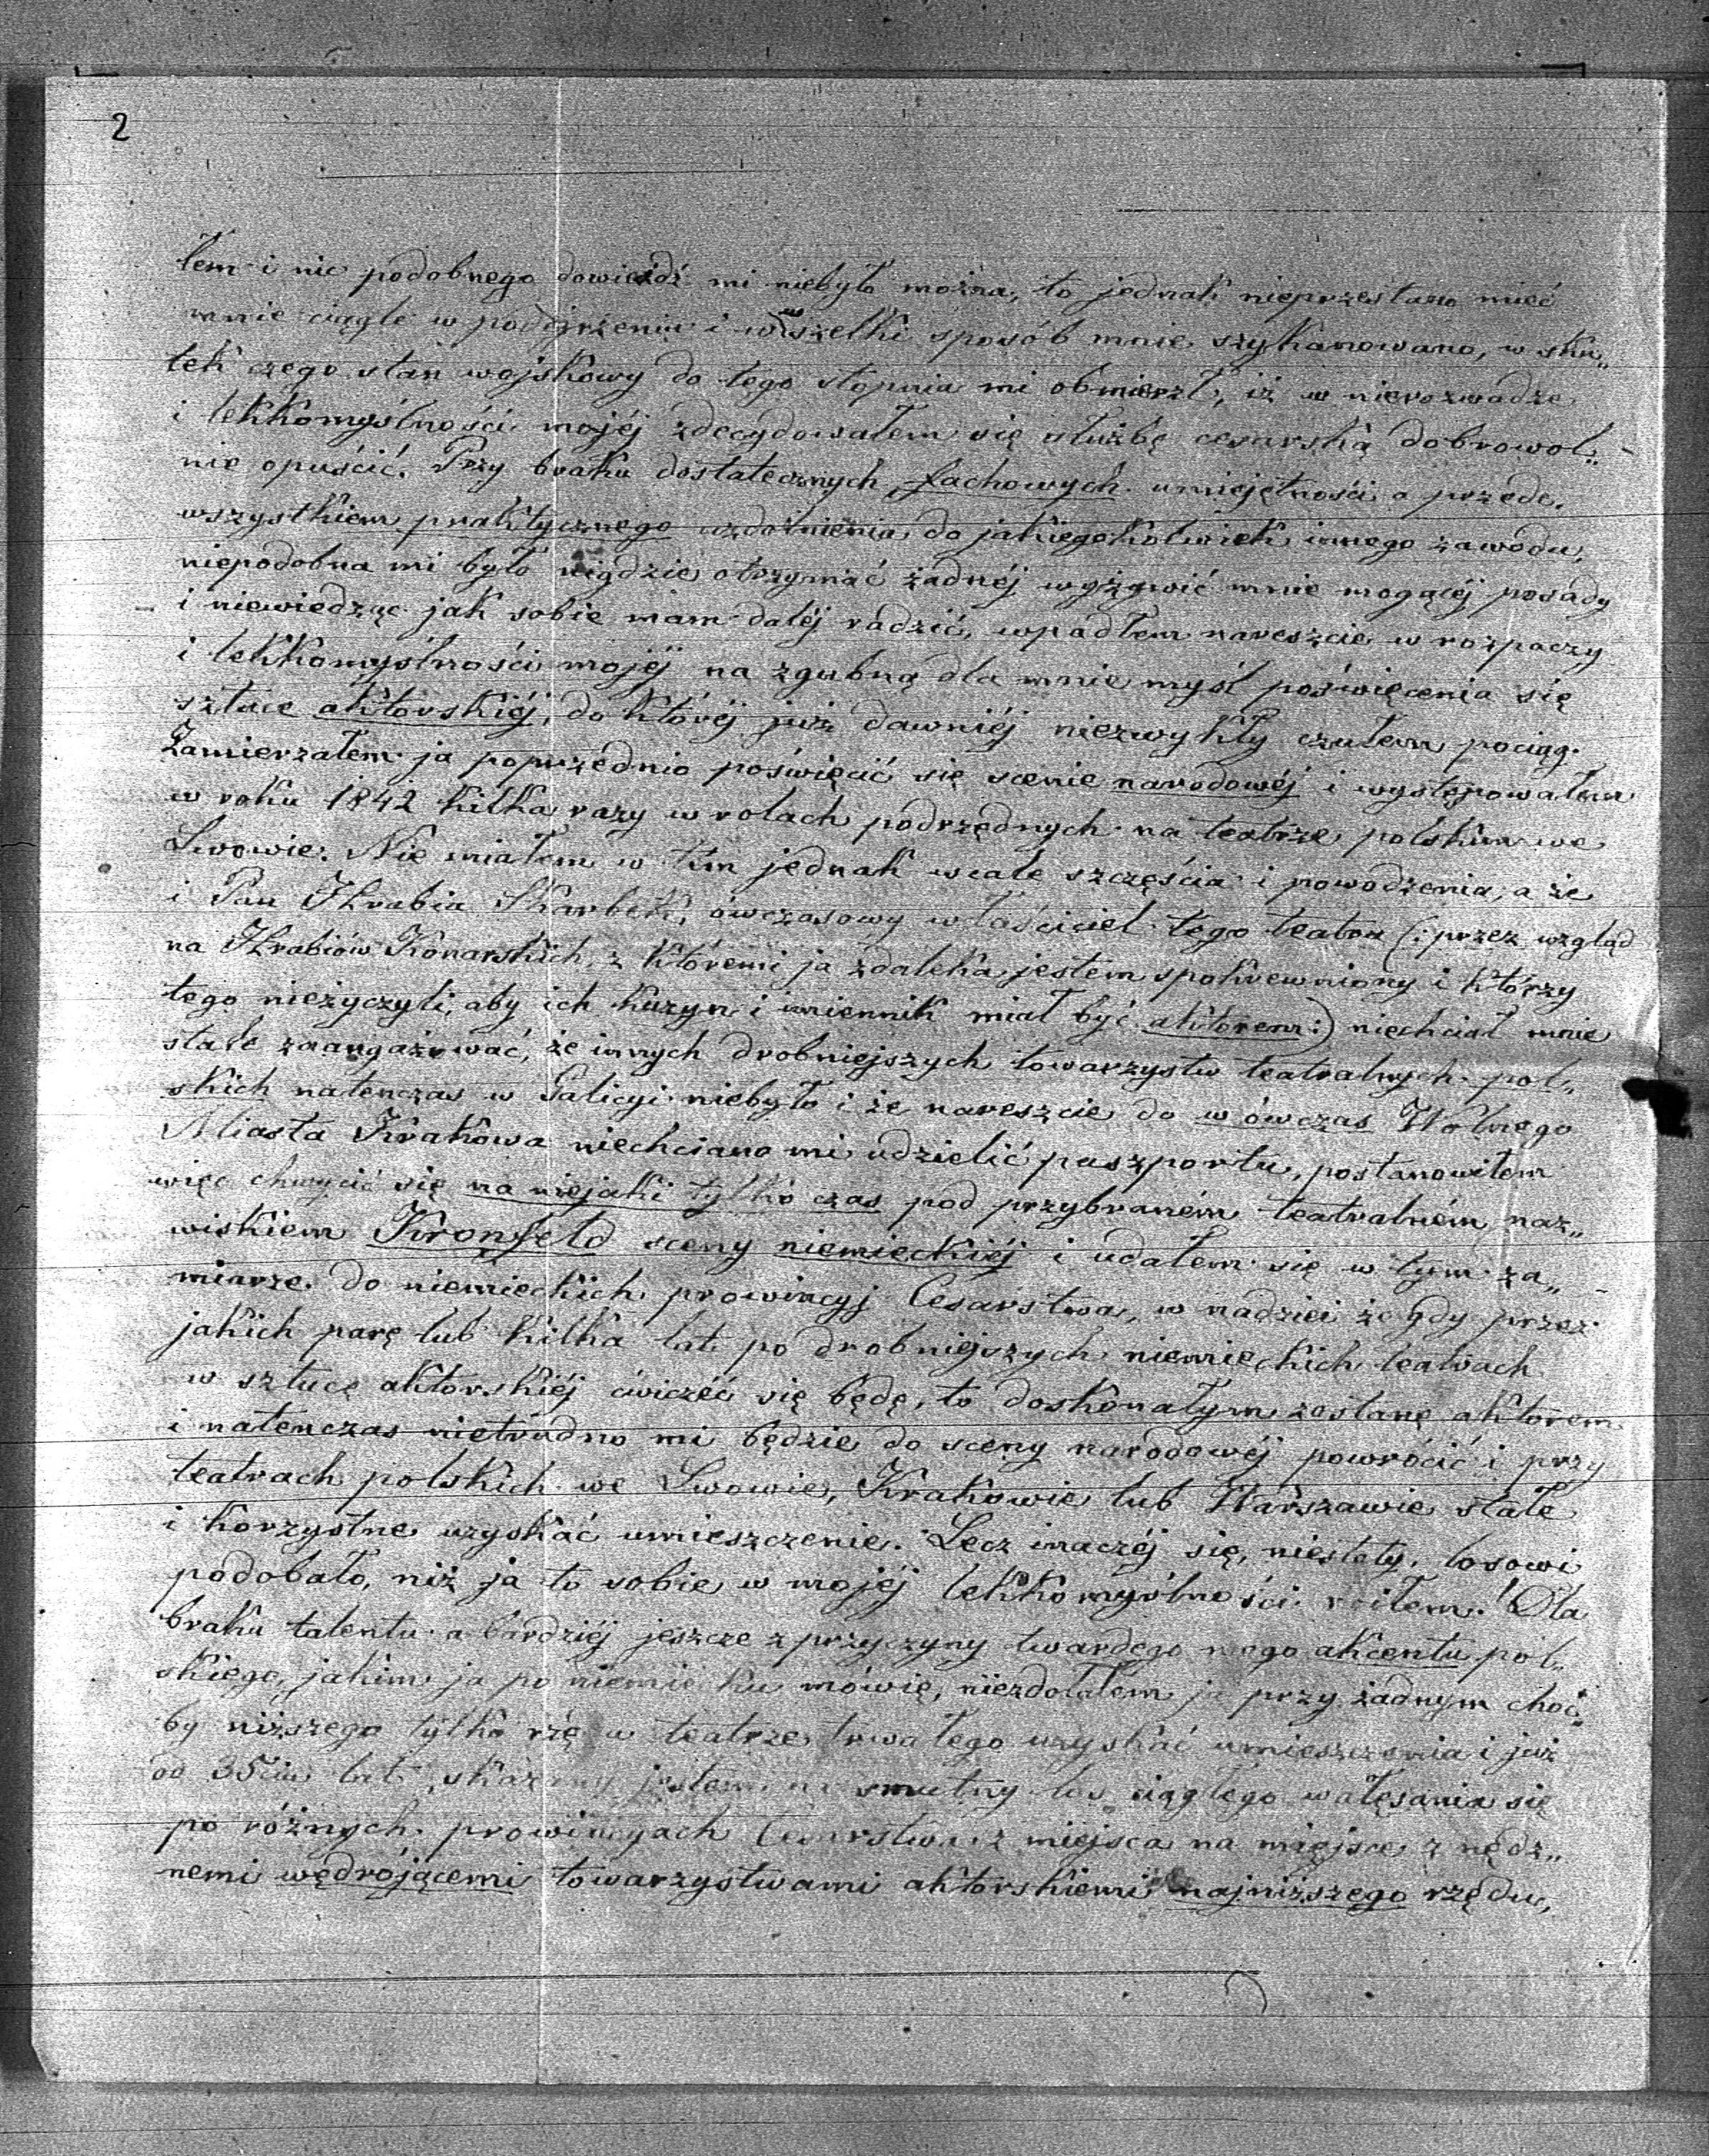 2
łem i nic podobnego dowieźdź mi niebyło można, to jednak nieprzestano mieć
mnie ciągle w podejrzeniu i wszelki sposób mnie szykanowano, w sku„
tek czego stan wojskowy do tego stopnia mi obmierzł, iż w nierozwadze
i lekkomyślności mojéj zdecydowałem się służbę cesarską dobrowol„
nie opuścić. Przy braku dostatecznych fachowych umiejętności a przede„
wszystkiem praktycznego uzdolnienia do jakiegokolwiek innego zawodu,
niepodobna mi było nigdzie otrzymać żadnéj wyżywić mnie mogącéj posady
i niewiedząc jak sobie mam daléj radzić, wpadłem nareszcie w rozpaczy
i lekkomyślności mojéj na zgubną dla mnie myśl poświęcenia się
sztuce aktorskiéj, do któréj już dawniéj niezwykły czułem pociąg.
Zamierzałem ja poprzednio poświęcić się scenie narodowéj i występowałem
w roku 1842 kilka razy w rolach podrzędnych na teatrze polskim we
Lwowie. Nie miałem w tém jednak wcale szczęścia i powodzenia, a że
i Pan Hrabia Skarbek, ówczasowy właściciel tego teatru (: przez wzgląd
na Hrabiów Konarskich, z któremi ja zdaleka jestem spokrewniony i którzy
tego nieżyczyli, aby ich kuzyn i imiennik miał być aktorem :) niechciał mnie
stale zaangażować, że innych drobniejszych towarzystw teatralnych pol„
skich natenczas w Galicyi niebyło i że nareszcie do w ówczas Wolnego
Miasta Krakowa niechciano mi udzielić paszportu, postanowiłem
więc chwycić się na niejaki tylko czas pod przybraném teatralném naz„
wiskiem Kronfeld sceny niemieckiéj i udałem się w tym za„
miarze do niemieckich prowincyj Cesarstwa, w nadziei że gdy przez
jakich parę lub kilka lat po drobniejszych niemieckich teatrach
w sztuce aktorskiéj ćwiczéć się będę, to doskonałym zostanę aktorem
i natenczas nietrudno mi będzie do sceny narodowéj powrócić i przy
teatrach polskich we Lwowie, Krakowie lub Warszawie stałe
i korzystne uzyskać umieszczenie. Lecz inaczéj się, niestety, losowi
podobało, niż ja to sobie w mojéj lekkomyślności roiłem. Dla
braku talentu a bardziéj jeszcze z przyczyny twardego mego akcentu pol„
skiego, jakim ja po niemiecku mówię, niezdołałem ja przy żadnym choć„
by niższego tylko rzędu teatrze trwałego uzyskać umieszczenia i już
od 35ciu lat skazany jestem na smutny los ciągłego wałęsania się
po różnych prowincyach Cesarstwa z miejsca na miejsce z nędz„
nemi wędrójącemi towarzystwami aktorskiemi najniższego rzędu,